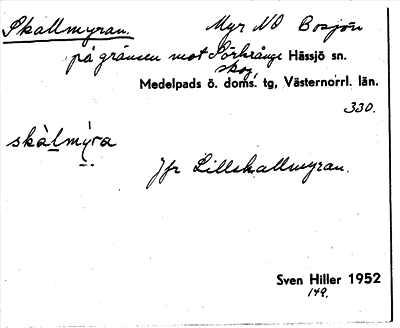 Skallmyran. Myr NO Bosjön
på gränsen mot Sörkrånge Hässjö sn.
skog,
Medelpads ö. doms. tg, Västernorrl. län.
330.
skàlmýra
Jfr Lillskallmyran.
Sven Hiller 1952
149.